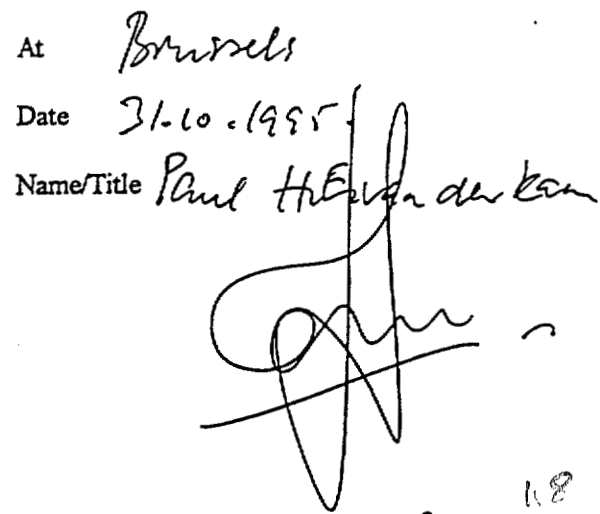 At Brussels
Date 31.10.1995.
Name/Title Paul H.E. van der Kam